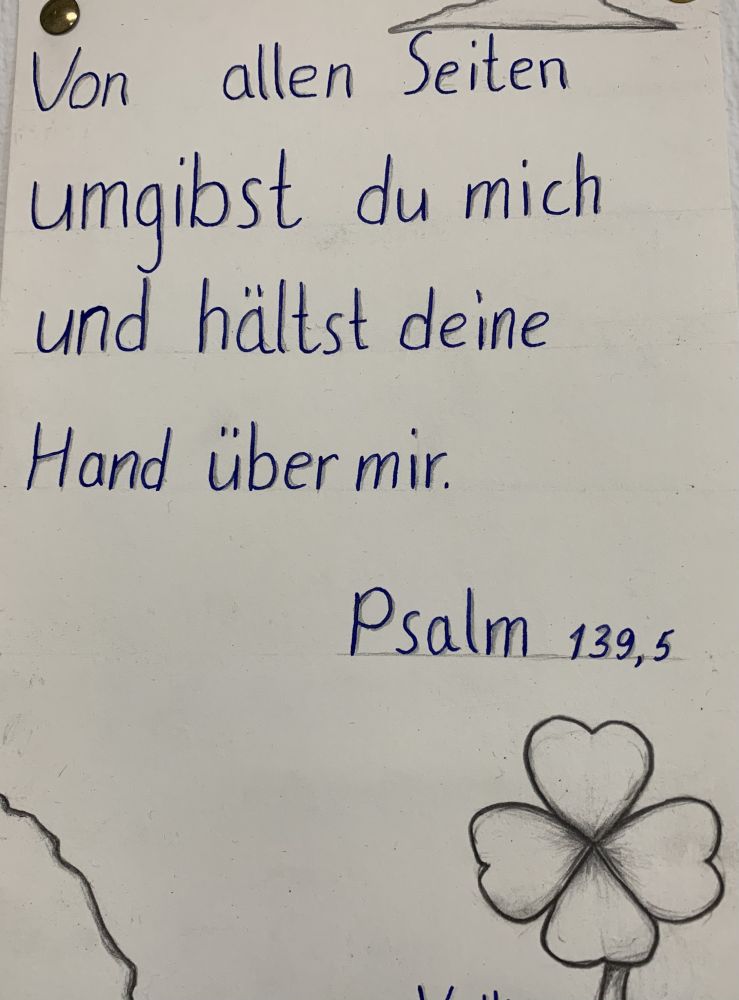 Von allen Seiten
umgibst du mich
und hältst deine
Hand über mir.
Psalm 139,5